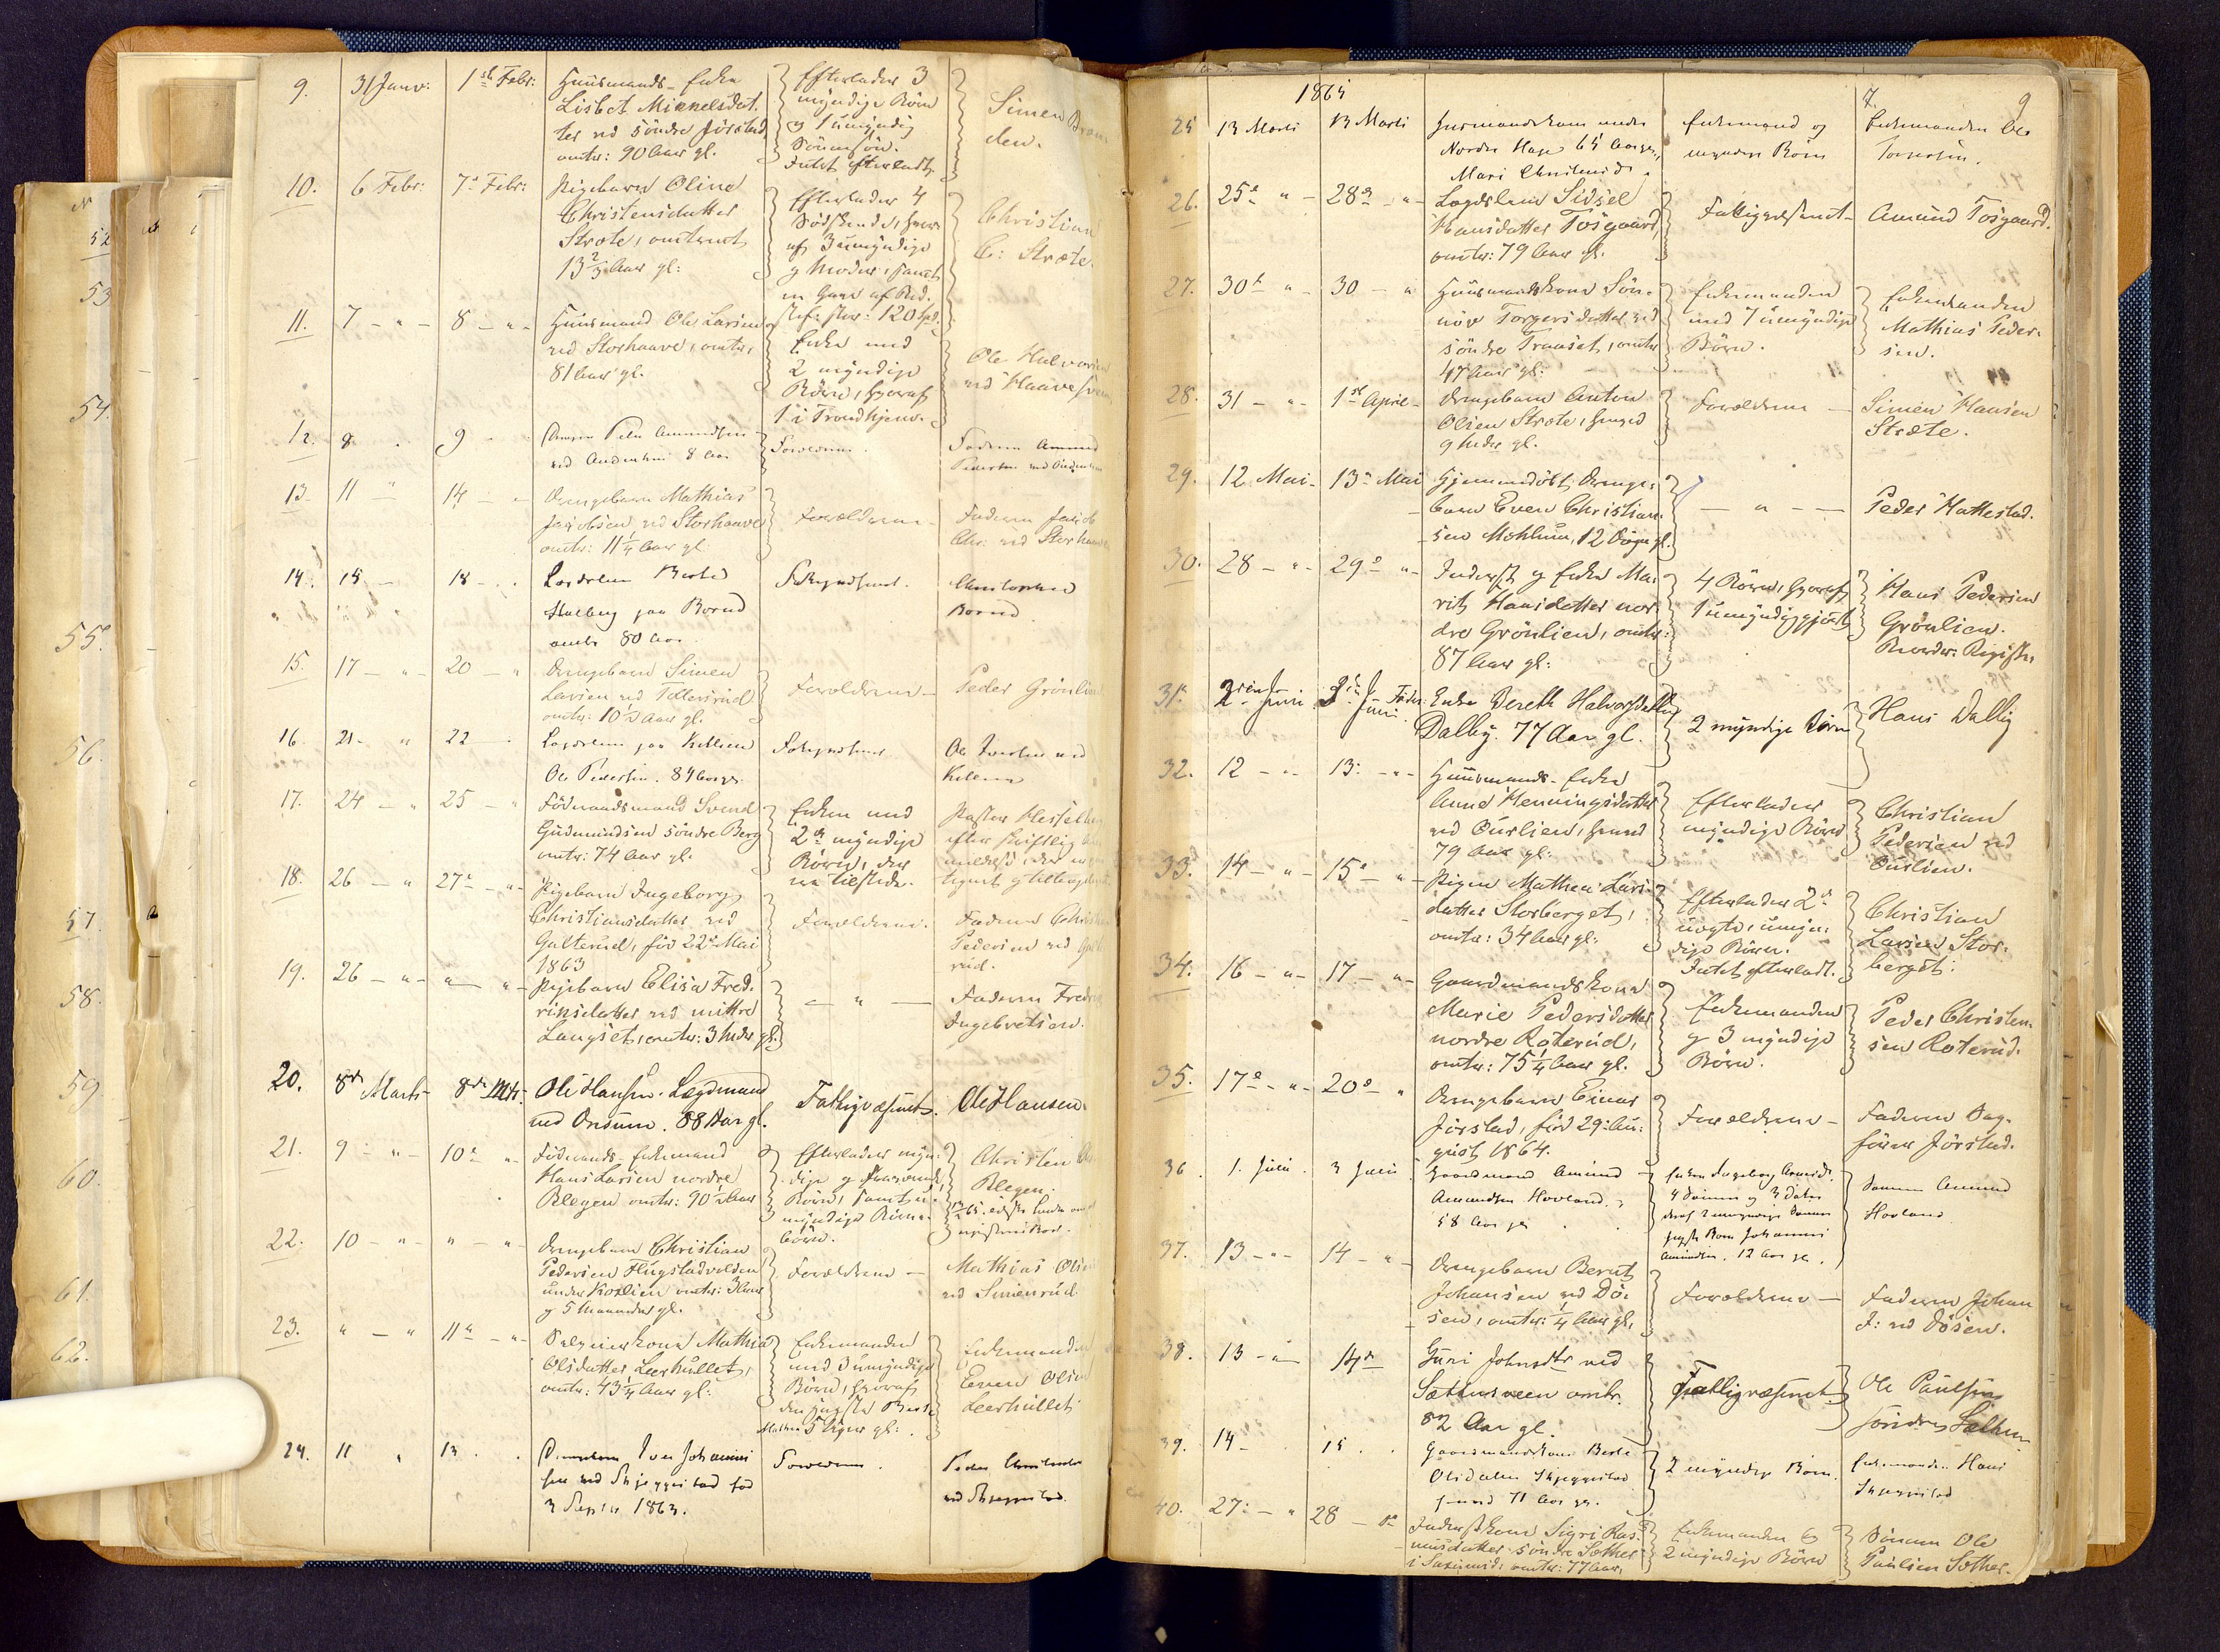 9. 31 Janv: 1ste Febr: Huusmands-Enke
Lisbet Mikkelsdat-
ter ved söndre Jörstad
omtr: 90 Aar gl.
Efterlader 3
myndige Börn
og 1 umyndig
Sönnesön.
Intet efterladt.
Simen
den.
10. 6 Febr: 7de Febr: Pigebarn Oline
Christensdatter
Stræte, omtrent
13 2/3 Aar gl:
Efterlader 4
Södskende, hvor-
af 3 umyndige
og Moder, samt
Christian
C: Stræte.
11. 7 - " - 8 - " - Huusmand Ole Larsen
ved Storhaave, omtr:
81 Aar gl.
Enke med
2 myndige
Börn, hvoraf
1 i Trondhjem.
Ole Halvorsen
ved Haave
12. 8 . 9 . Peder Amundsen
8 Aar
Forældrene.
Faderen Amund
Pedersen ved
13. 11 " 14 - " Drengebarn Mathias
Jacobsen ved Storhaave
omtr: 11 1/4 Aar gl.
Forældrene -
Faderen Jacob
Chr: ved Storhaave
14. 15 - 18 - . Lægdslem Berthe
Stalberg paa Bornd
omtr 80 Aar.
Fattigvæsenet.
Christopher
Bornd.
15. 17 - " - 20 - " Drengebarn Simen
Larsen ved Tollersrud
omtr: 10 1/2 Aar gl.
Forældrene -
Peder Grönlien
16. 21 - " 22 - . Lægdslem paa Killien
Ole Pedersen. 84 Aar gl.
Fattigvæsenet
Ole Iversen ved
17. 24 - " 25 - " Föderaadsmand Svend
Gudmundsen söndre Berg
omtr: 74 Aar gl.
Enken med
2de myndige
Börn, der
ere tilstede.
Pastor Hesselberg
efter skriftlig
18. 26 - " 27de - " - Pigebarn Ingeborg
Christiansdatter ved
Galterud, föd 22de Mai
1863
Forældrene.
Faderen Christian
Pedersen ved
rud.
19. 26 - " - " - " - Pigebarn Elisa Fred-
riksdatter ved mittre
Langset, omtr: 3 Uger gl.
- " -
Faderen Fredrik
Ingebretsen.
20. 8de Marts 8de Mts. Ole Hansen Lægdmand
ved Onsum. 88 Aar gl.
Fattigvæsenet.
Ole Hansen.
21. 9 - " - 10de " - Föderaads-Enkemand
Hans Larsen nordre
Blegen omtr: 90 1/2 Aar
Efterlader myn-
dige og fraværende
Börn, samt u-
myndige Börne-
börn.
Christen
Blegen.
22. 10 - " - " - " - Drengebarn Christian
Pedersen Flugstadvolden
under Kollien omtr: 3 Aar
og 5 Maaneder gl.
Forældrene -
Mathias Olsen
ved Simenrud.
23. " - " 11te - " - Selveierkone Mathia
Olsdatter Leerhullet,
omtr: 43 1/4 Aar gl:
Enkemanden
med 3 umyndige
Börn, hvoraf
den yngste Berte
Mathea 5 Uger gl:
Enkemanden
Even Olsen
Leerhullet
24. 11 " 13 . . Drengebarn Iver Johannes-
sen ved Skjeggestad föd
3 Septbr 1863.
Forældrene.
Peder
ved Skjeggestad.
1865
7.
9
25 13 Marts 13 Marts Huusmandskone under
Nordre Hage 65 Aar gl,
Mari
Enkemand og
myndige Börn
Enkemanden Ole
26. 25de " - 28de - " - Lægdslem Sidsel
Hansdatter Tosgaard,
omtr: 79 Aar gl.
Fattigvæsenet -
Amund Tosgaard.
27. 30te " - 30 - " Huusmandskone Sön-
növ Torgersdatter ved
söndre Traaset, omtr
47 Aar gl:
Enkemanden
med 7 umyndige
Börn.
Enkemanden
Mathias Peder-
sen.
28. 31 - " - 1ste April - Drengebarn Anton
Olsen Stræte, henved
9 Uger gl.
Forældrene -
Simen Hansen
Stræte.
29. 12 Mai - 13de Mai Hjemmedöbt Drenge-
barn Even Christian-
sen Mohlum, 12 Dage gl.
- " - -
Peder Hattestad.
30. 28 - " - 29de " - Inderst og Enke Ma-
rit Hansdatter nor-
dre Grönlien, omtr:
87 Aar gl:
4 Börn, hvoraf
1 umyndiggjort
Hans Pedersen
Grönlien.
31te 2den Juni 3de Juni Enke Dereth Halvorsdatter
Dalby. 77 Aar gl.
2 myndige Börn
Hans Dalby
32. 12 - " - 13: - " - Huusmands-Enke
Anne Henningsdatter
ved Ourlien, henved
79 Aar gl:
Efterlader
myndige Börn
Christian
Pedersen ved
Ourlien.
33. 14 - " - 15de - " - Pigen Mathea Lars-
datter Storberget,
omtr: 34 Aar gl:
Efterlader 2de
uægte, umyn-
dige Börn.
Intet efterladt.
Christian
Larsen Stor-
berget:
34. 16 - " - 17 - " - Gaardmandskone
Marie Pedersdatter
nordre Roterud,
omtr: 75 1/4 Aar gl.
Enkemanden
og 3 myndige
Börn.
Peder Christen-
sen Roterud.
35. 17de - " - 20de " Drengebarn Einar
Jörstad, föd 29de Au-
gust 1864.
Forældrene -
Faderen Dag-
finn Jörstad.
36. 1. Juli . 3 Juli Gaardmand Amund
Amundsen Hovland.
58 Aar gl
Enken Ingeborg
4 Sönner og 3 Dötre
deraf 2 umyndige Sönner
yngste Barn Johannes
Amundsen. 12 Aar gl.
Sönnen Amund
Hovland
37. 13 - " - 14 - " - Drengebarn Bernt
Johansen ved Dö-
sen, omtr: 1/4 Aar gl.
Forældrene -
Faderen Johan
J: ved Dösen.
38. 13 - " - 14de Guri Johnsdtr ved
Sætherveen omtr.
82 Aar gl.
Fattigvæsenet
Ole Paulsen
söndre Sæther
39. 14 - . 15 . . Gaardmandskone Berte
Olsdatter Skjeggestad
henved 71 Aar gl.
2 myndige Börn.
Enkemanden Hans
Skjeggestad
40. 27: - " 28 - " Inderstkone Sigri Ras-
musdatter söndre Sæther
omtr: 77 Aar.
Enkemanden og
2 myndige Börn
Sönnen Ole
Paulsen Sæther.
52
53
54.
55.
56.
57
58.
59
60.
61.
62.